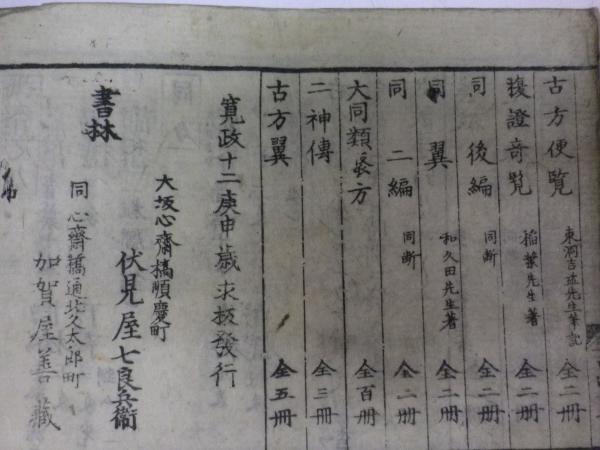 古方便覧 東洞吉益先生筆記 全二冊
腹證奇覧 稲葉先生著 全二冊
同 後編 同断 全二冊
同 翼 和久田先生著 全二冊
同 二編 同断 全二冊
大同類聚方 全百冊
二神傳 全三冊
古方翼 全五冊
寛政十二庚申歳求板發行
大坂心齋橋順慶町
書林 伏見屋七良兵衞
同心齋橋通北久太郎町
加賀屋善藏